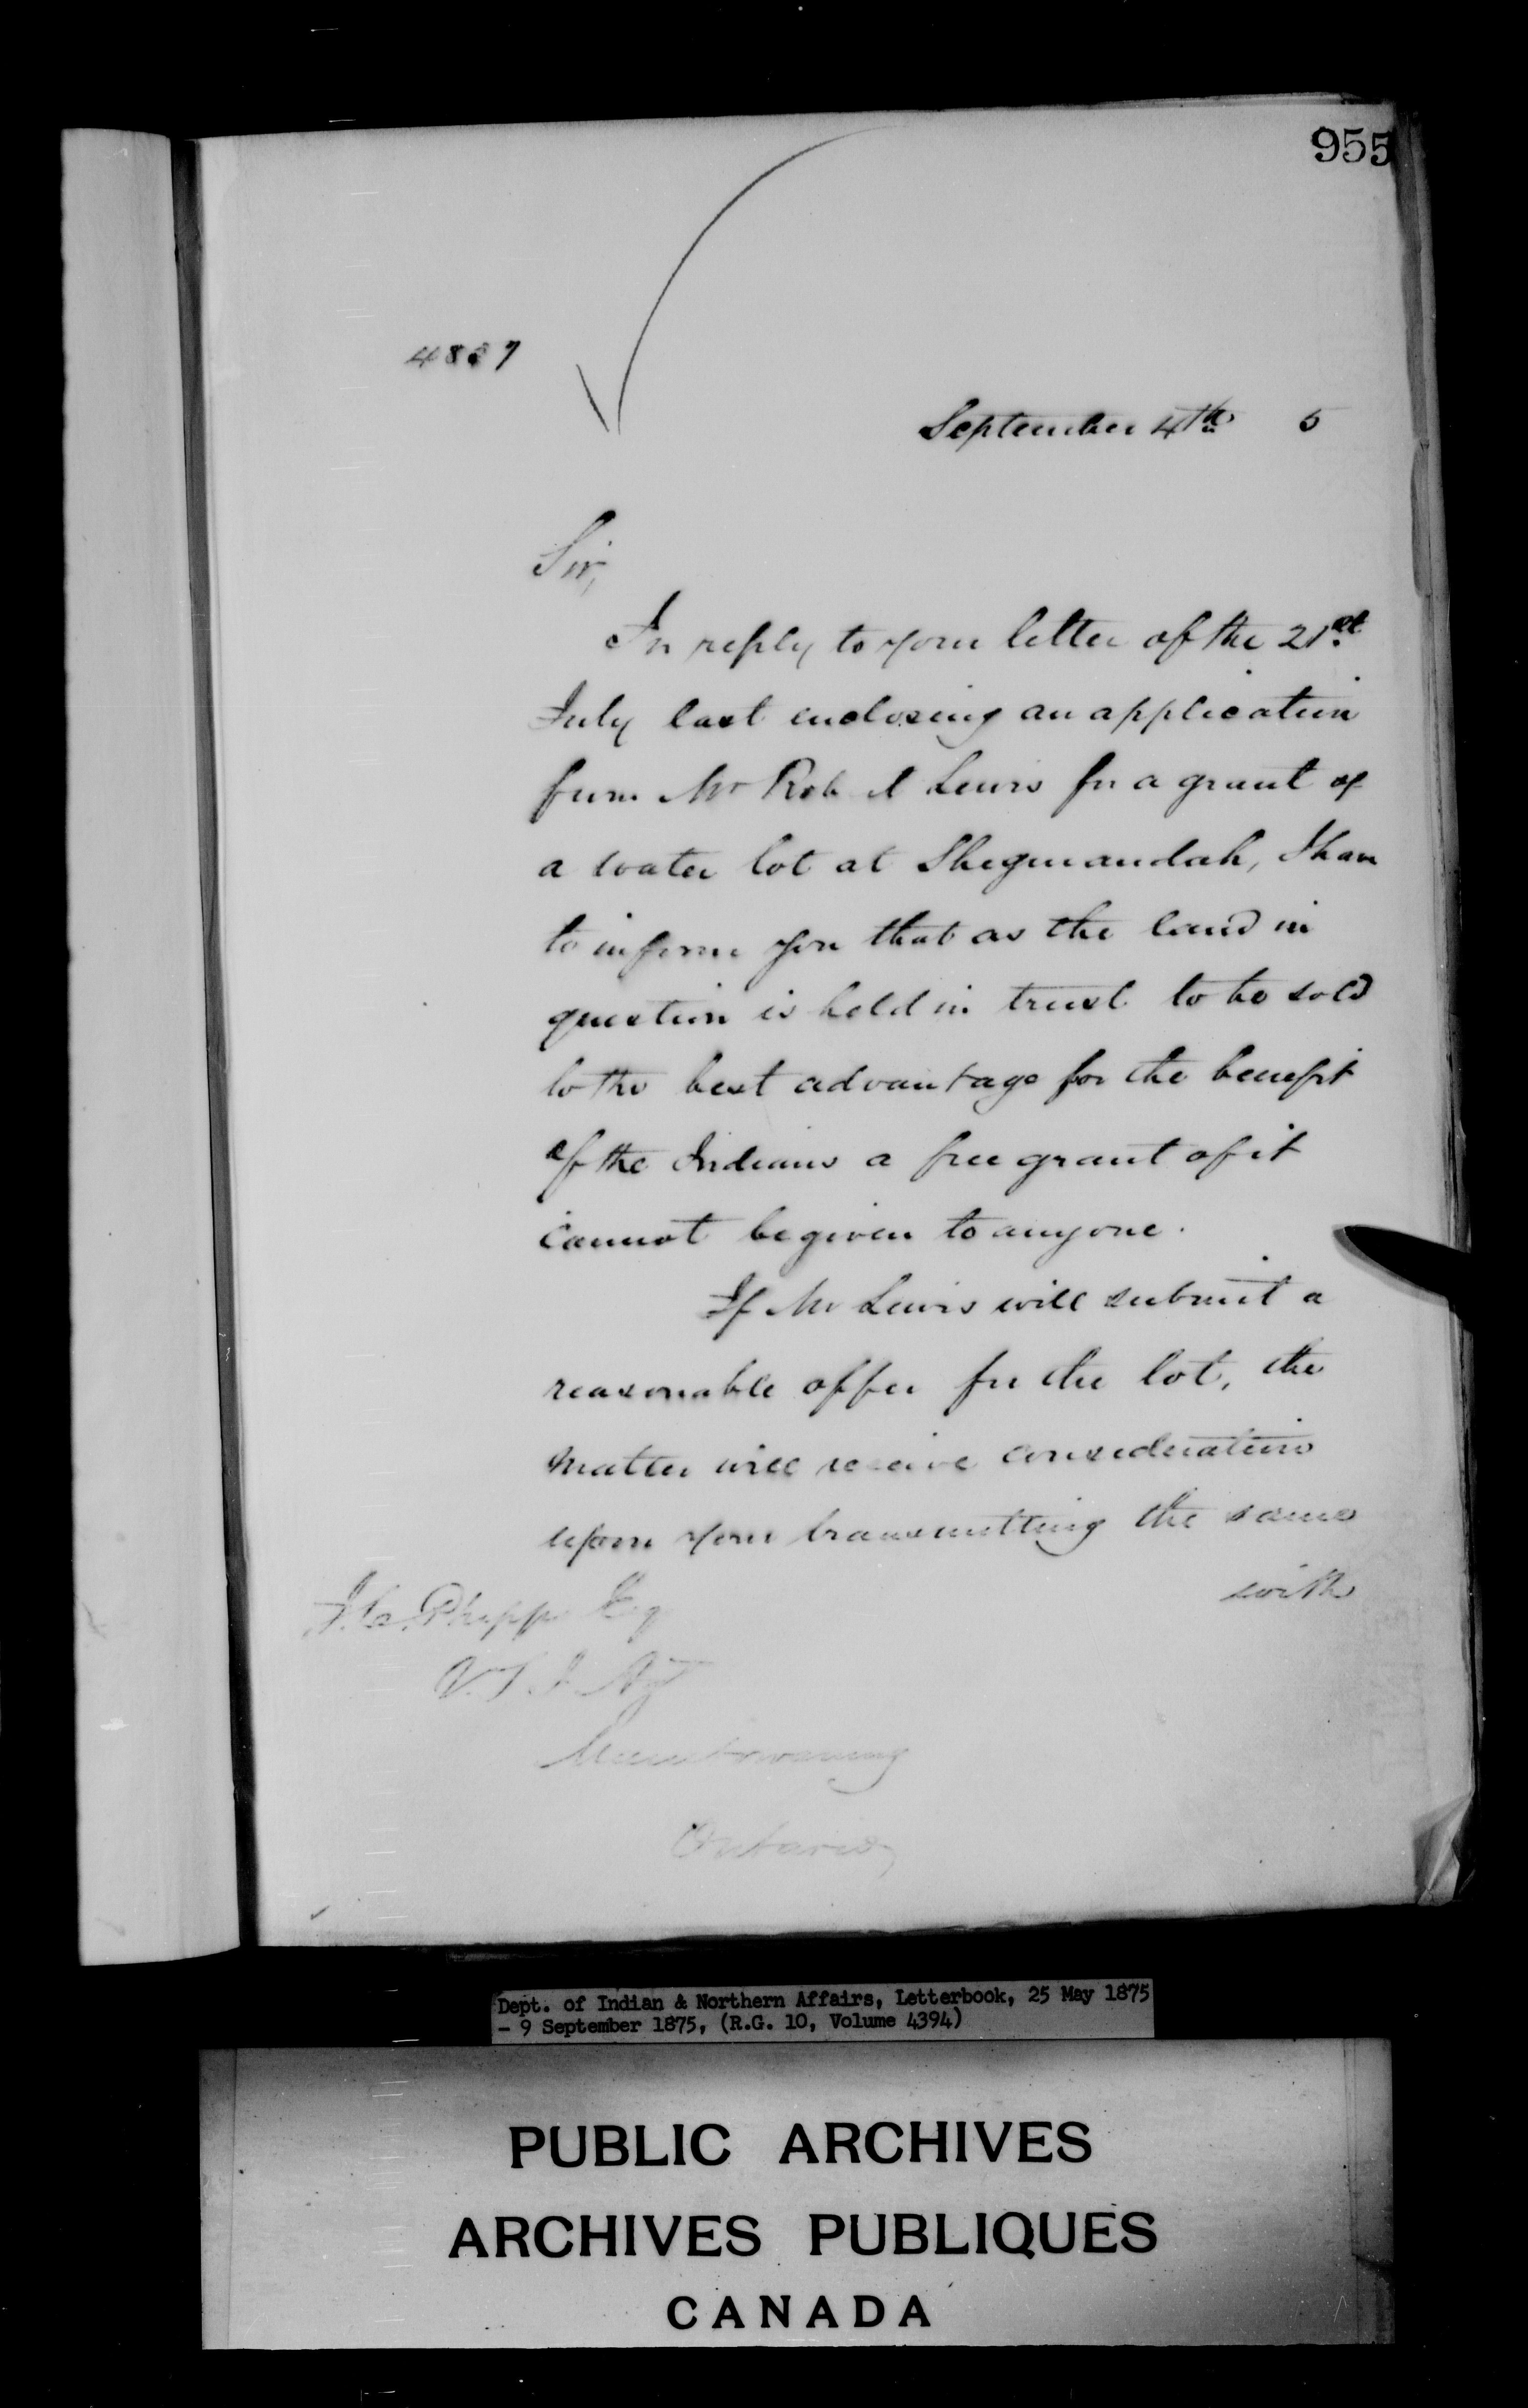 955
4827
September 4th 5
Sir,
In reply to your letter of the 21st
July last enclosing an application
from Mr Robt Lewis for a grant of
a water lot at Sheguiandah, I have
to inform you that as the land in
question is held in trust to be sold
to the best advantage for the benefit
of the Indians a free grant of it
cannot be given to anyone.
If Mr Lewis will submit a
reasonable offer for the lot, the
matter will receive consideration
upon your transmitting the same
with
J. C. Phipps Esq
V. S. I. Agt
Manitowaning
Ontario
Dept. of Indian & Northern Affairs, Letterbook, 25 May 1875
- 9 September 1875, (R.G. 10, Volume 4394)
PUBLIC ARCHIVES
ARCHIVES PUBLIQUES
CANADA